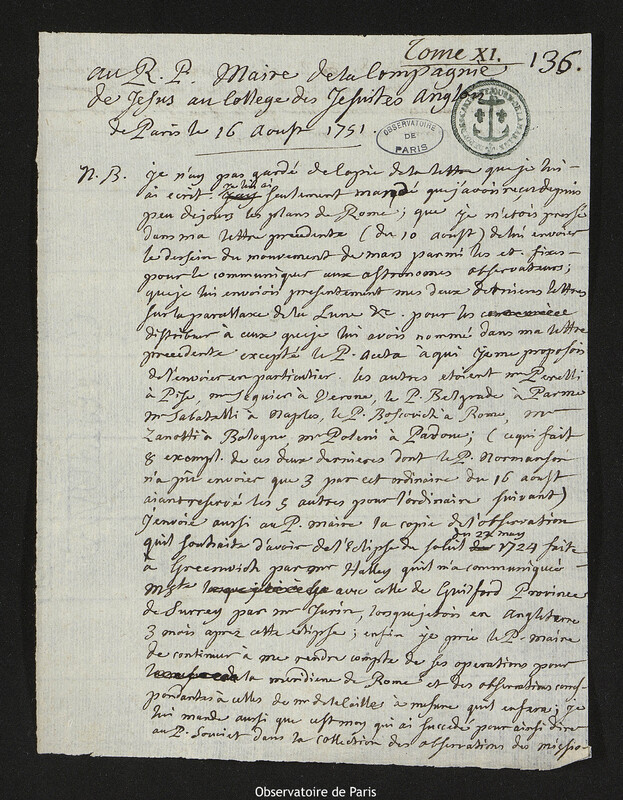 Tome XI. 136.
au R. P. Maire de la Compagnie
de Jesus au College des Jesuites Anglois
de Paris le 16 Aoust 1751.
OBSERVATOIRE DE PARIS
N. B. je n'ay pas gardé de copie de la lettre que je lui
ai écrit. je lui ai seulement mandé que j'avois recu depuis
peu de jours les plans de Rome; que je m'etois pressé
dans ma lettre precedente (du 10 aoust) de lui envoier
le dessein du mouvement de mars parmi les et. fixes
pour le communiquer aux astronomes observateurs;
que je lui envoiois presentement mes deux dernieres lettres
sur la parallaxe de la Lune &c. pour les
distribuer à ceux que je lui avois nommé dans ma lettre
precedente excepté le P. à qui je me proposois
de l'envoier en particulier. les autres etoient mr Perelli
à Pise, mr Seguier à Verone, le P. Belgrade à Parme
mr Sabatelli à Naples, le P. Boscovich à Rome, mr
Zanotti à Bologne, mr Poleni à Padoue; (ce qui fait
8 exempl. de ces deux dernieres dont le P. Normanson
n'a pû envoier que 3 par cet ordinaire du 16 aoust
aiant reservé les 5 autres pour l'ordinaire suivant)
J'envoie aussi au P. maire la copie de l'observation
qu'il souhaite d'avoir de l'Eclipse du soleil du 22 may 1724 faite
à Greenwich par mr Halley qu'il m'a communiquée
mste avec celle de Guilford Province
de Surrey par mr Jurin, lorsque j'etois en Angleterre
3 mois aprez cette eclipse; enfin je prie le P. maire
de continuer à me rendre compte de ses operations pour
la meridiene de Rome et des observations corres-
pondantes à celles de mr de la Caille à mesure qu'il en fera; je
lui mande aussi que c'est moy qui ai succedé pour ainsi dire
au P. Souciet dans la collection des observations des missio-
Observatoire de Paris